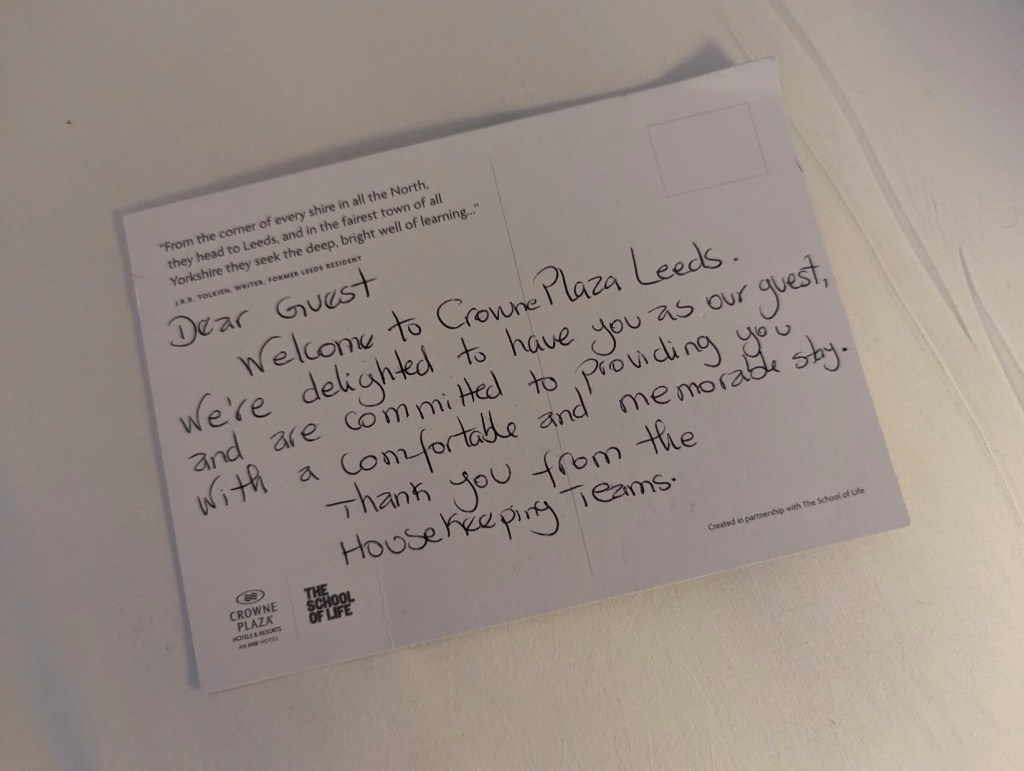 "From the corner of every shire in all the North,
they head to Leeds, and in the fairest town of all
Yorkshire they seek the deep, bright well of learning..."
J.R.R. TOLKIEN, WRITER, FORMER LEEDS RESIDENT
Dear Guest
Welcome to Crowne Plaza Leeds.
We're delighted to have you as our guest,
and are committed to providing you
with a comfortable and memorable stay.
Thank you from the
Housekeeping Teams.
Created in partnership with The School of Life
CROWNE
PLAZA
HOTELS & RESORTS
AN IHG HOTEL
THE
SCHOOL
OF LIFE